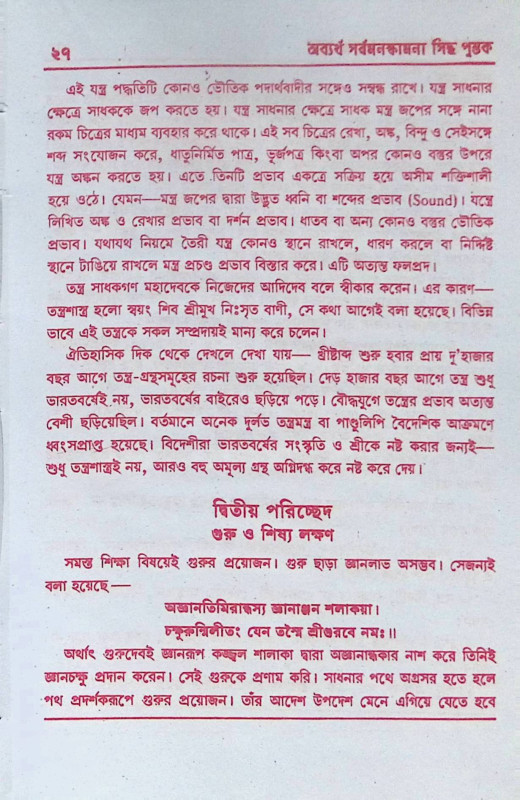 ২৭ অব্যর্থ সর্বমনস্কামনা সিদ্ধ পুস্তক
এই যন্ত্র পদ্ধতিটি কোনও ভৌতিক পদার্থবাদীর সঙ্গেও সম্বন্ধ রাখে। যন্ত্র সাধনার
ক্ষেত্রে সাধককে জপ করতে হয়। যন্ত্র সাধনার ক্ষেত্রে সাধক মন্ত্র জপের সঙ্গে নানা
রকম চিত্রের মাধ্যম ব্যবহার করে থাকে। এই সব চিত্রের রেখা, অঙ্ক, বিন্দু ও সেইসঙ্গে
শব্দ সংযোজন করে, ধাতুনির্মিত পাত্র, ভূর্জপত্র কিংবা অপর কোনও বস্তুর উপরে
যন্ত্র অঙ্কন করতে হয়। এতে তিনটি প্রভাব একত্রে সক্রিয় হয়ে অসীম শক্তিশালী
হয়ে ওঠে। যেমন—মন্ত্র জপের দ্বারা উদ্ভূত ধ্বনি বা শব্দের প্রভাব (Sound)। যন্ত্রে
লিখিত অঙ্ক ও রেখার প্রভাব বা দর্শন প্রভাব। ধাতব বা অন্য কোনও বস্তুর ভৌতিক
প্রভাব। যথাযথ নিয়মে তৈরী যন্ত্র কোনও স্থানে রাখলে, ধারণ করলে বা নির্দিষ্ট
স্থানে টাঙিয়ে রাখলে মন্ত্র প্রচণ্ড প্রভাব বিস্তার করে। এটি অত্যন্ত ফলপ্রদ।
তন্ত্র সাধকগণ মহাদেবকে নিজেদের আদিদেব বলে স্বীকার করেন। এর কারণ—
তন্ত্রশাস্ত্র হলো স্বয়ং শিব শ্রীমুখ নিঃসৃত বাণী, সে কথা আগেই বলা হয়েছে। বিভিন্ন
ভাবে এই তন্ত্রকে সকল সম্প্রদায়ই মান্য করে চলেন।
ঐতিহাসিক দিক থেকে দেখলে দেখা যায়— খ্রীষ্টাব্দ শুরু হবার প্রায় দু'হাজার
বছর আগে তন্ত্র-গ্রন্থসমূহের রচনা শুরু হয়েছিল। দেড় হাজার বছর আগে তন্ত্র শুধু
ভারতবর্ষেই নয়, ভারতবর্ষের বাইরেও ছড়িয়ে পড়ে। বৌদ্ধযুগে তন্ত্রের প্রভাব অত্যন্ত
বেশী ছড়িয়েছিল। বর্তমানে অনেক দুর্লভ তন্ত্রমন্ত্র বা পাণ্ডুলিপি বৈদেশিক আক্রমণে
ধ্বংসপ্রাপ্ত হয়েছে। বিদেশীরা ভারতবর্ষের সংস্কৃতি ও শ্রীকে নষ্ট করার জন্যই—
শুধু তন্ত্রশাস্ত্রই নয়, আরও বহু অমূল্য গ্রন্থ অগ্নিদগ্ধ করে নষ্ট করে দেয়।
দ্বিতীয় পরিচ্ছেদ
গুরু ও শিষ্য লক্ষণ
সমস্ত শিক্ষা বিষয়েই গুরুর প্রয়োজন। গুরু ছাড়া জ্ঞানলাভ অসম্ভব। সেজন্যই
বলা হয়েছে—
অজ্ঞানতিমিরান্ধস্য জ্ঞানাঞ্জন শলাকয়া।
চক্ষুরুন্মিলীতং যেন তস্মৈ শ্রীগুরবে নমঃ॥
অর্থাৎ গুরুদেবই জ্ঞানরূপ কজ্জ্বল শালাকা দ্বারা অজ্ঞানান্ধকার নাশ করে তিনিই
জ্ঞানচক্ষু প্রদান করেন। সেই গুরুকে প্রণাম করি। সাধনার পথে অগ্রসর হতে হলে
পথ প্রদর্শকরূপে গুরুর প্রয়োজন। তাঁর আদেশ উপদেশ মেনে এগিয়ে যেতে হবে